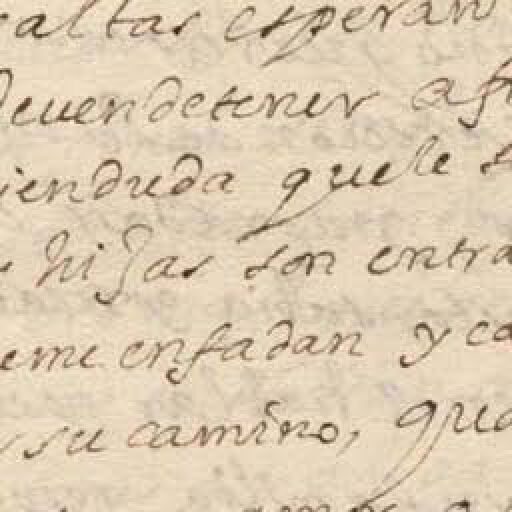 faltas esperan
deuen detener a
uienduda que le
hijas son entra
eme enfadan y ca
su camino, qua